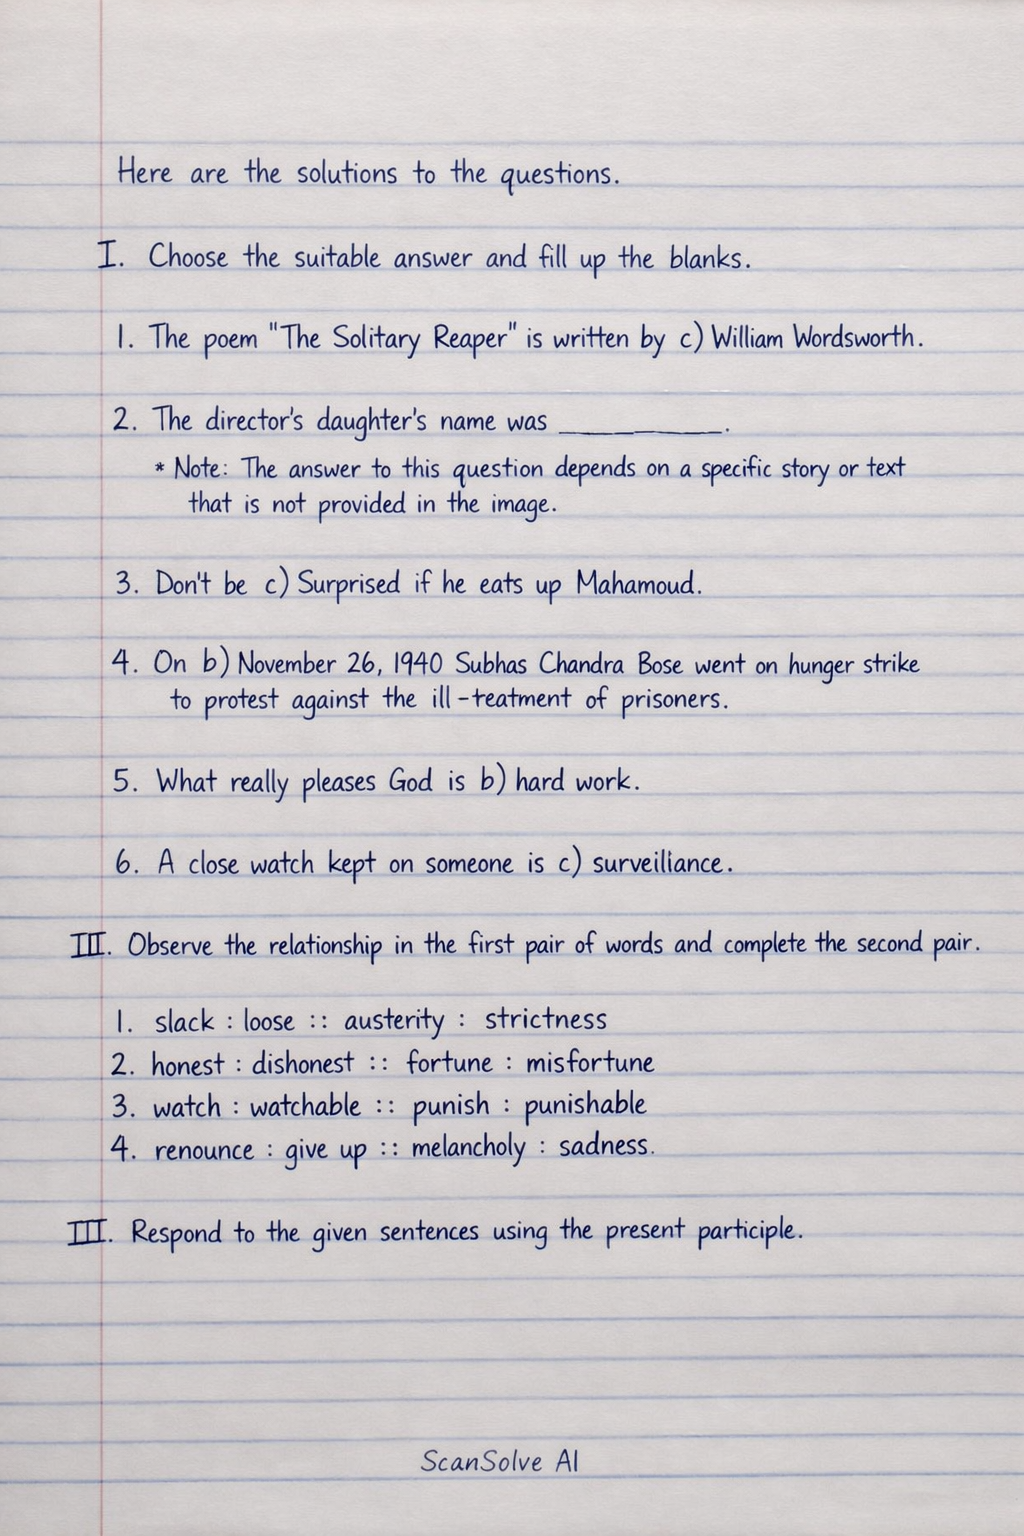 Here are the solutions to the questions.
I. Choose the suitable answer and fill up the blanks.
1. The poem "The Solitary Reaper" is written by c) William Wordsworth.
2. The director's daughter's name was ____________.
* Note: The answer to this question depends on a specific story or text
that is not provided in the image.
3. Don't be c) Surprised if he eats up Mahamoud.
4. On b) November 26, 1940 Subhas Chandra Bose went on hunger strike
to protest against the ill-teatment of prisoners.
5. What really pleases God is b) hard work.
6. A close watch kept on someone is c) surveiliance.
III. Observe the relationship in the first pair of words and complete the second pair.
1. slack : loose :: austerity : strictness
2. honest : dishonest :: fortune : misfortune
3. watch : watchable :: punish : punishable
4. renounce : give up :: melancholy : sadness.
III. Respond to the given sentences using the present participle.
ScanSolve AI